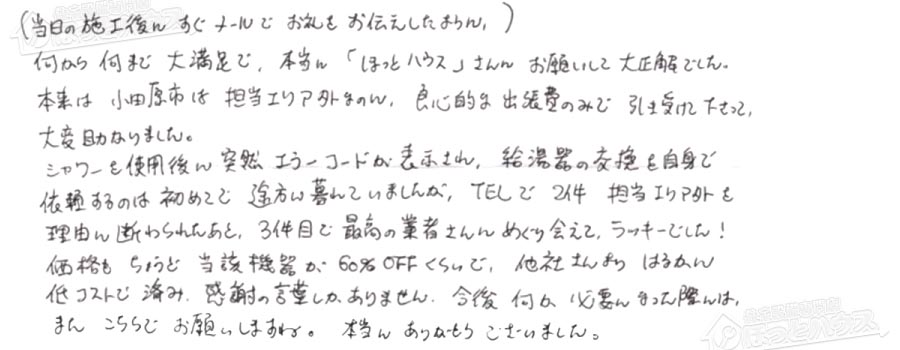 (当日の施工後に すぐ メールで お礼を お伝えしたまらん,)
何から 何まで 大満足で、本当に 「ほっとハウス」さんに お願いして 大正解でした。
本来は 小田原市は 担当エリア外なのに、良心的な 出張費のみで 引き受けて 下さって、
大変助かりました。
シャワーを使用後に 突然 エラーコードが 表示され、給湯器の交換を自身で
依頼するのは 初めてで 途方に暮れていましたが、TELで 2件 担当エリア外を
理由に断わられたあと、3件目で 最高の業者さんに めぐり会えて、ラッキーでした!
価格も ちょうど 当該機器が 60% OFFくらいで、他社さんより はるかに
低コストで 済み、感謝の言葉しかありません。今後 何か 必要になった際には、
また こちらで お願いしますね。 本当に ありがとう ございました。
ほっとハウス